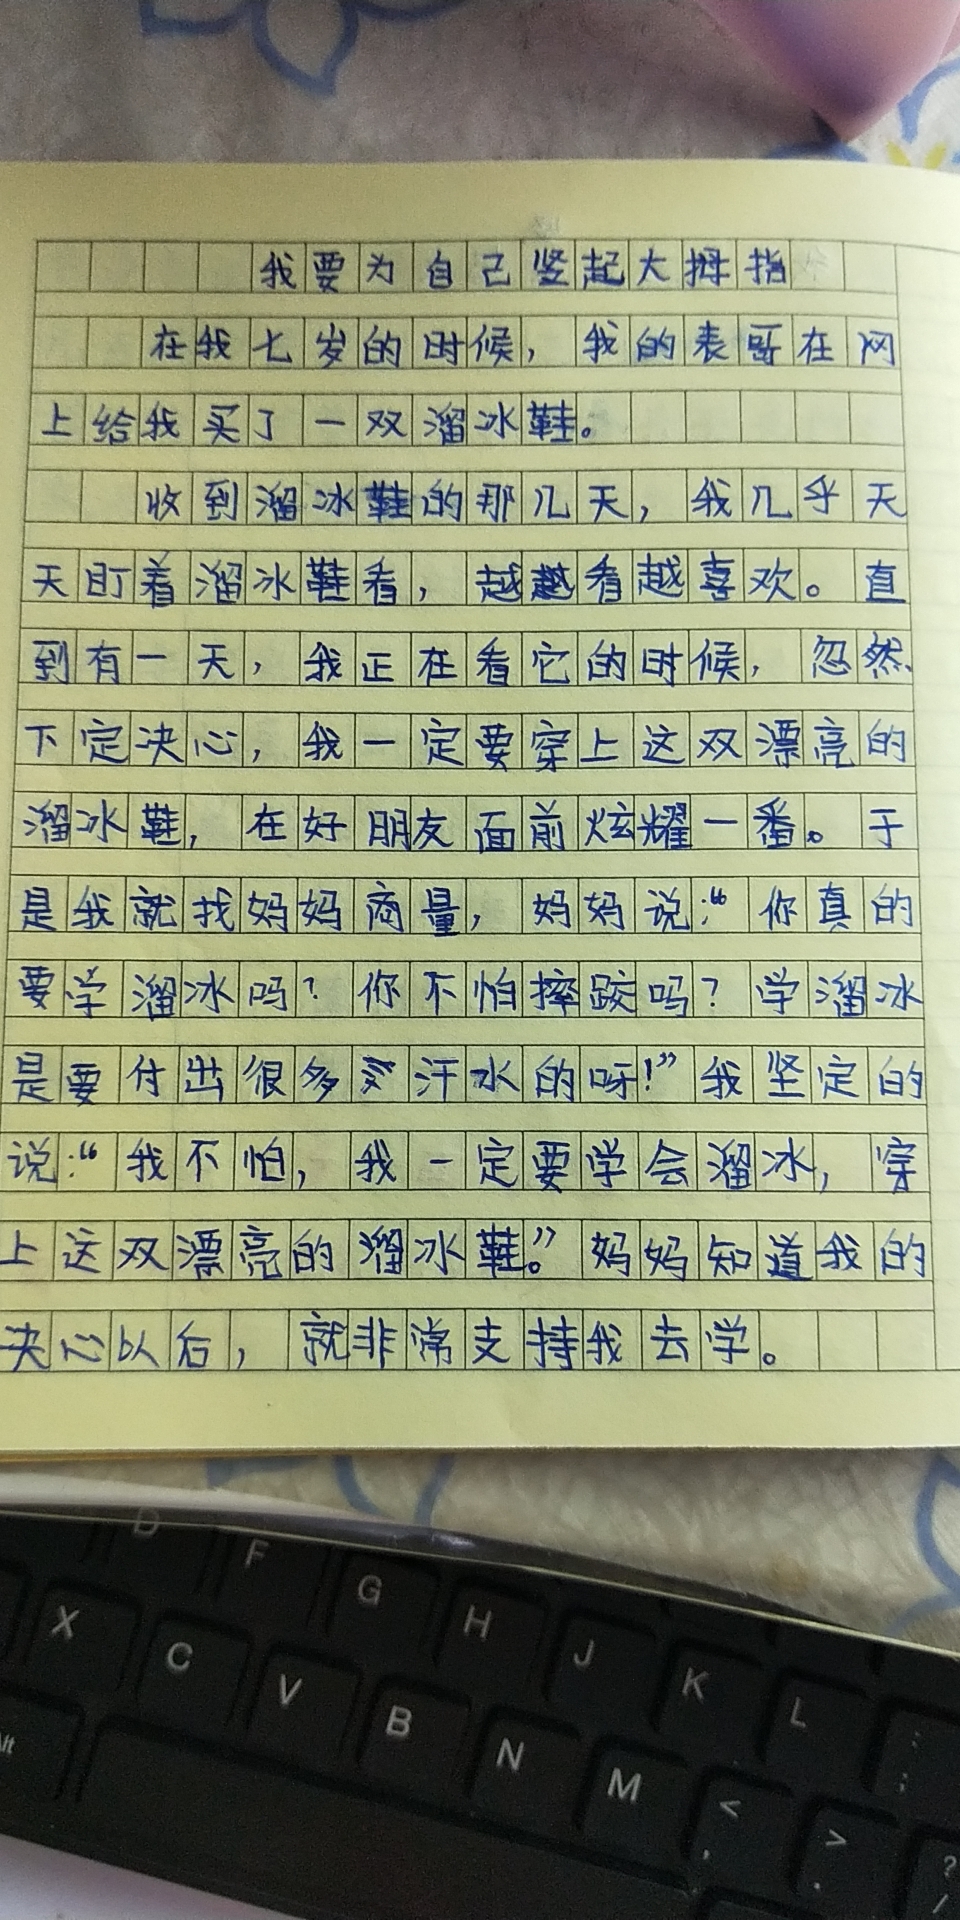 我要为自己竖起大拇指
在我七岁的时候，我的表哥在网
上给我买了一双溜冰鞋。
收到溜冰鞋的那几天，我几乎天
天盯着溜冰鞋看，越越看越喜欢。直
到有一天，我正在看它的时候，忽然、
下定决心，我一定要穿上这双漂亮的
溜冰鞋，在好朋友面前炫耀一番。于
是我就找妈妈商量，妈妈说：“你真的
要学溜冰吗？你不怕摔跤吗？学溜冰
是要付出很多汗水的呀！”我坚定的
说：“我不怕，我一定要学会溜冰，穿
上这双漂亮的溜冰鞋。”妈妈知道我的
决心以后，就非常支持我去学。
D
F
G
H
J
K
L
: ;
X
C
V
B
N
M
< ,
> .
? /
Alt